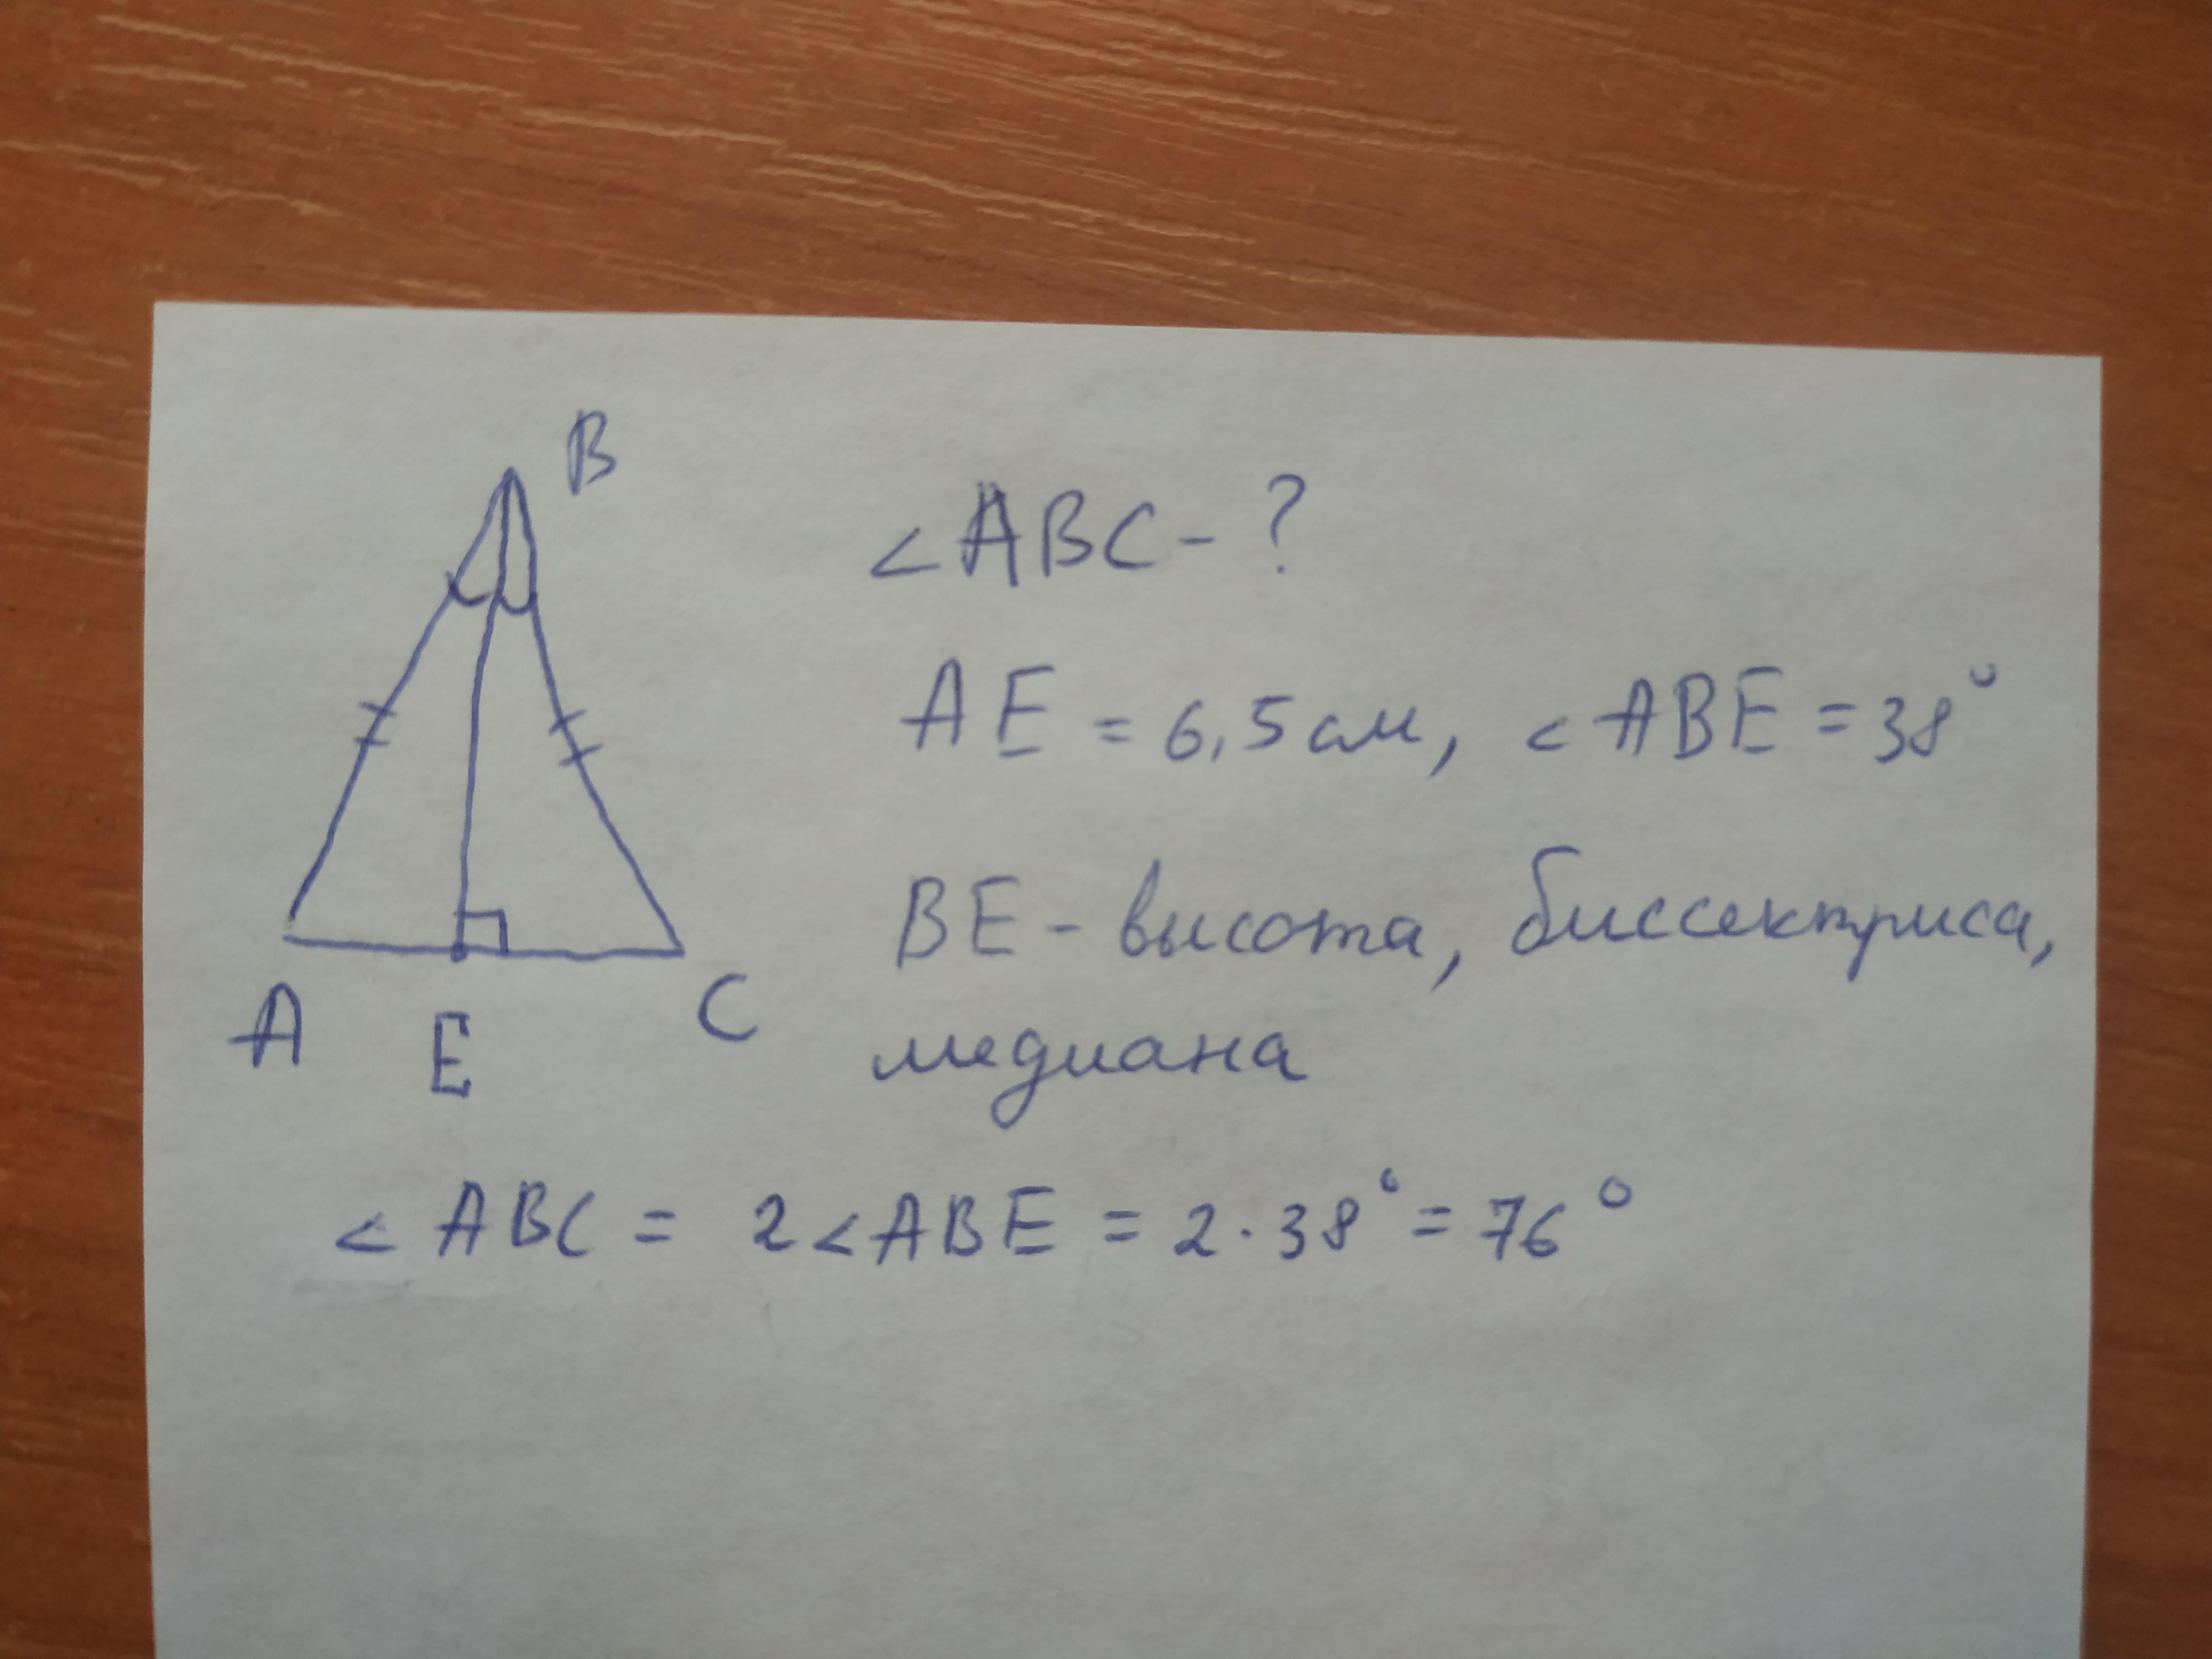 B
<ABC-?
AE = 6,5 см, <ABE = 38°
BE - высота, биссектриса,
медиана
A E C
<ABC = 2<ABE = 2·38° = 76°